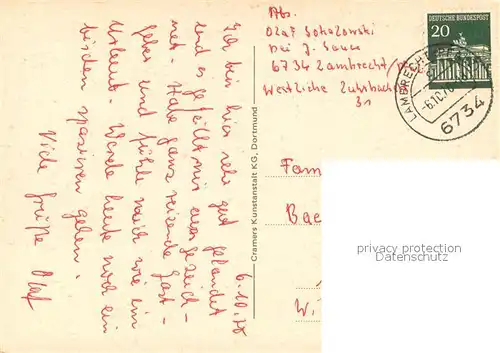 6.10.70
Ich bin hier sehr gut gelandet
und es gefällt mir ausgezeich-
net. Habe ganz reizende Gast-
geber und fühle mich wie im
Urlaub. Werde heute noch ein
bißchen spazieren gehen.
Viele Grüße Olaf
Cramers Kunstanstalt KG, Dortmund
Abs.
Olaf Sokolowski
bei J. Sauer
6734 Lambrecht
Westliche
31
DEUTSCHE BUNDESPOST
20
LAMBRECHT
6734
Fam
Bae
W.
privacy protection
Datenschutz